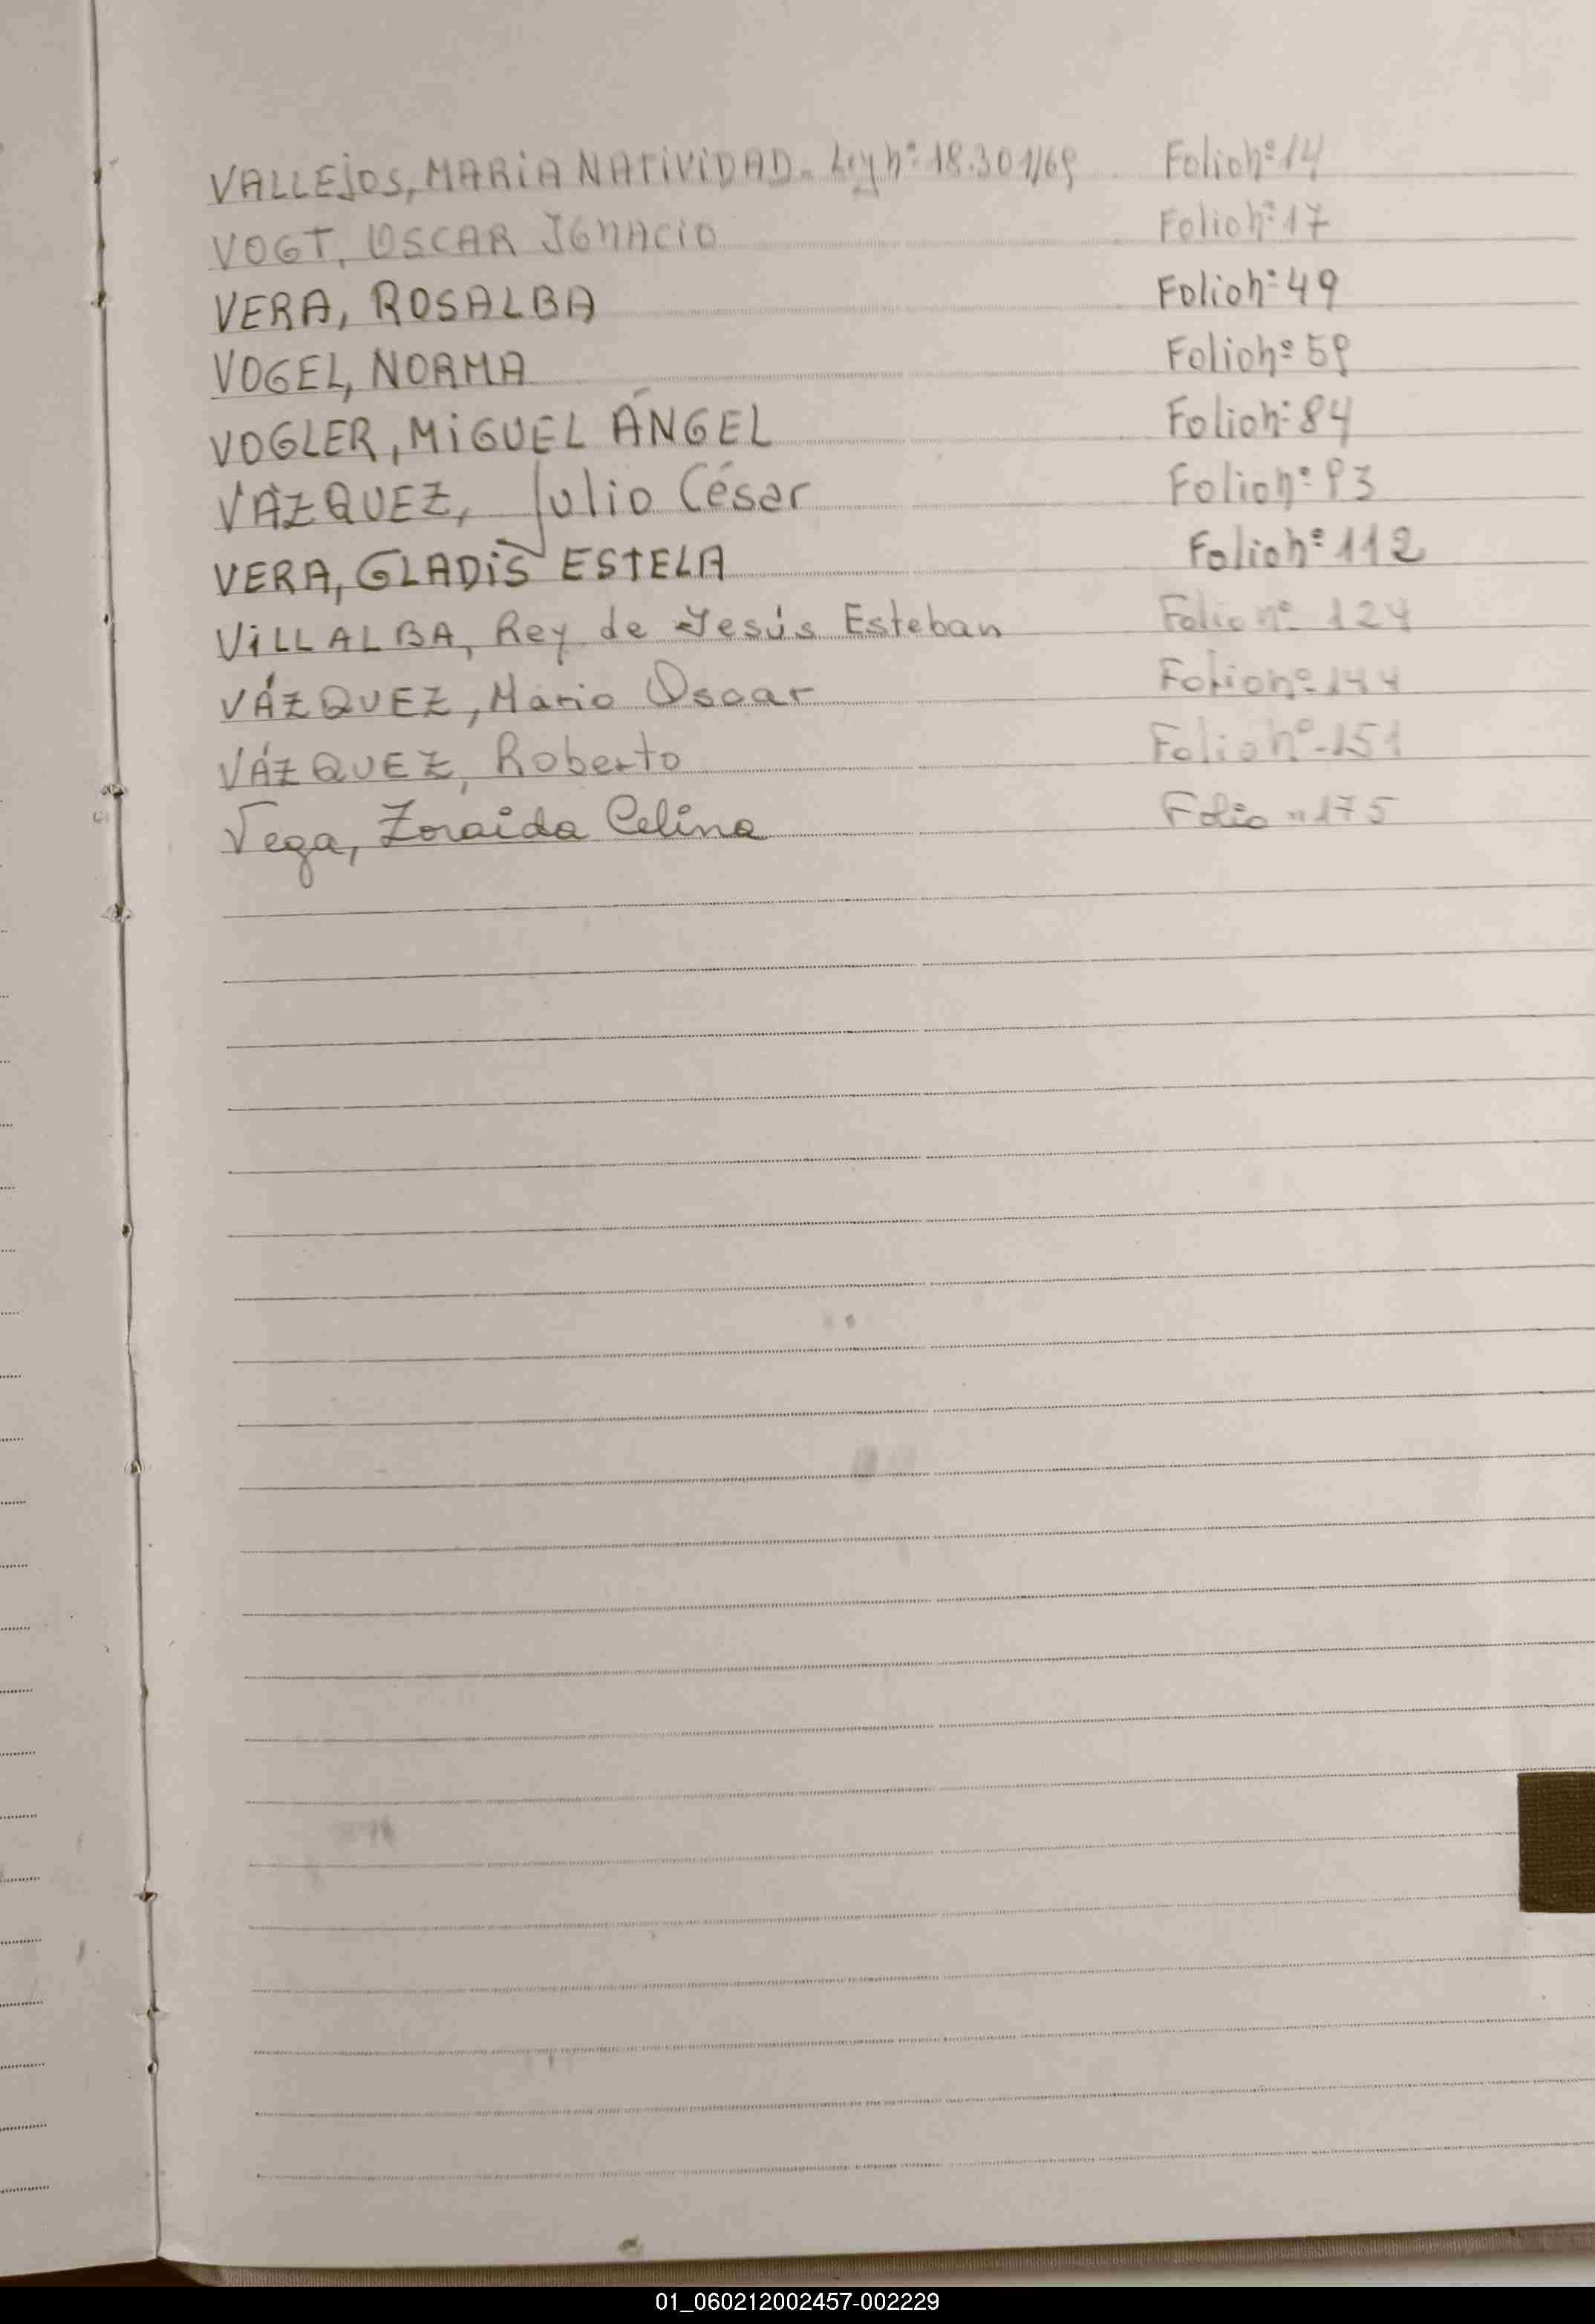 VALLEJOS, MARIA NATIVIDAD. Ley nº 18.301/69 Folio nº 14
VOGT, OSCAR IGNACIO Folio nº 17
VERA, ROSALBA Folio nº 49
VOGEL, NORMA Folio nº 59
VOGLER, MIGUEL ÁNGEL Folio nº 84
VÁZQUEZ, Julio César Folio nº 93
VERA, GLADIS ESTELA Folio nº 112
VILLALBA, Rey de Jesús Esteban Folio nº 124
VÁZQUEZ, Mario Oscar Folio nº 144
VÁZQUEZ, Roberto Folio nº 151
Vega, Zoraida Celina Folio " 175
01_060212002457-002229